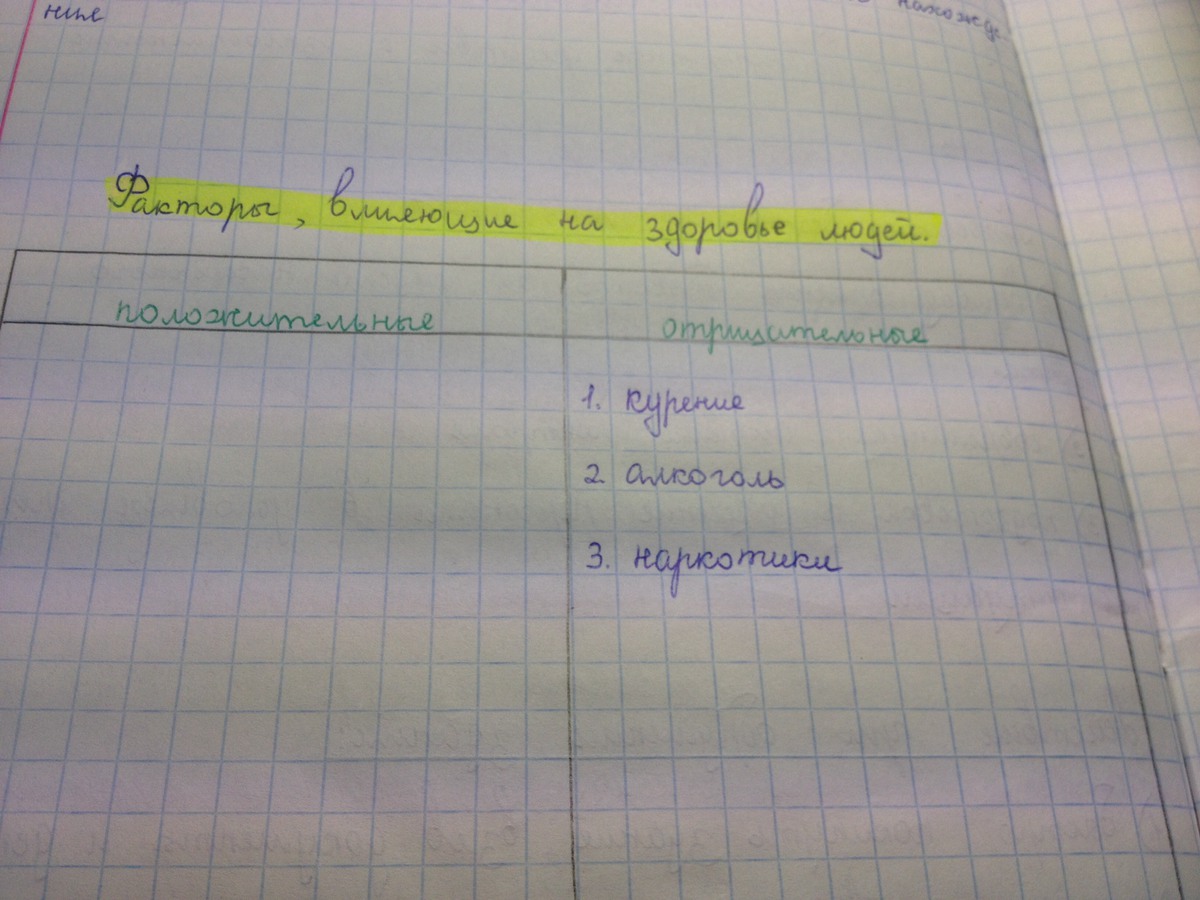 ние
нахожде-
Факторы, влияющие на здоровье людей.
положительные
отрицательные
1. курение
2. алкоголь
3. наркотики